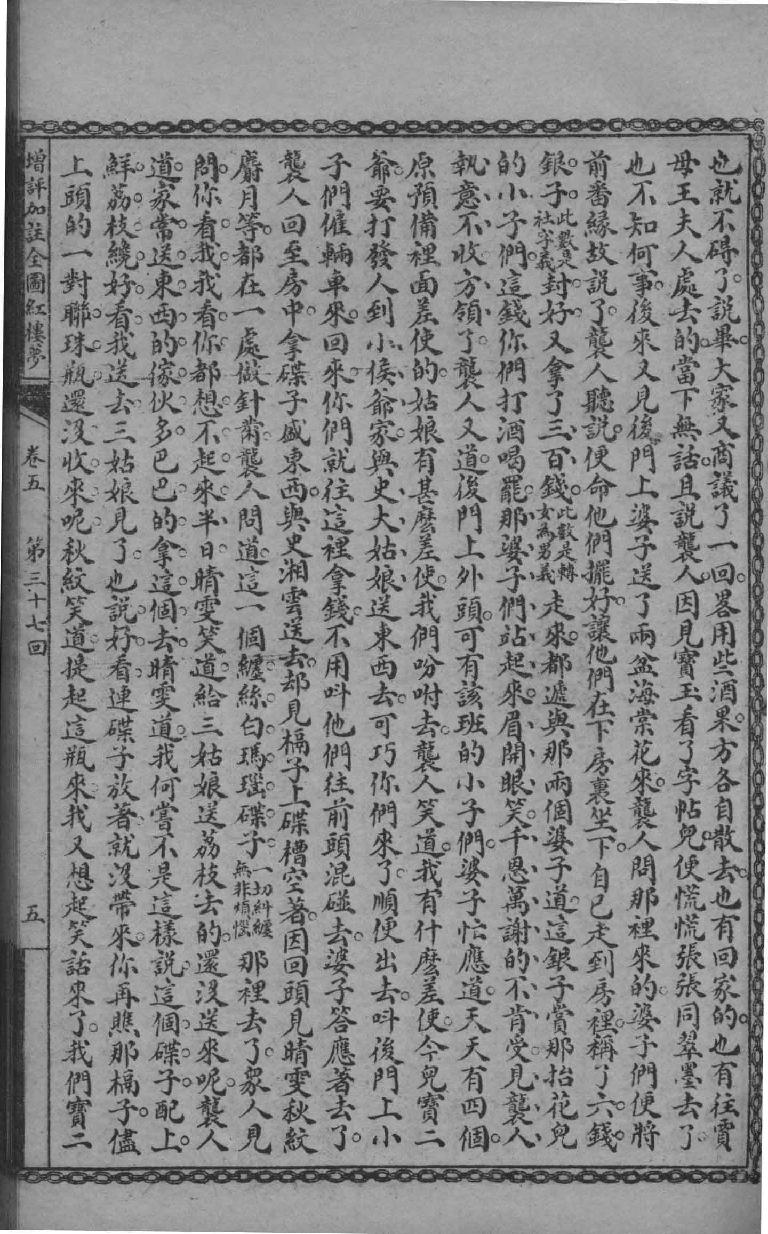 也就不碍了。說畢。大家又商議了一回。畧用些酒果。方各自散去。也有回家的。也有往賈
母王夫人處去的。當下無話。且說襲人因見寶玉看了字帖兒。便慌慌張張同翠墨去了。
也不知何事。後來又見後門上婆子送了兩盆海棠花來。襲人問那裡來的。婆子們便將
前番緣故說了。襲人聽說。便命他們擺好。讓他們在下房裏坐下。自己走到房裡。稱了六錢
銀子。此數是社字義封好。又拿了三百錢。此數是轉女為男義走來。都遞與那兩個婆子道。這銀子賞那抬花兒
的小子們。這錢你們打酒喝罷。那婆子們站起來。眉開眼笑。千恩萬謝的不肯受。見襲人
執意不收。方領了。襲人又道。後門上外頭可有該班的小子們。婆子忙應道。天天有四個。
原預備裡面差使的。姑娘有甚麽差使。我們吩咐去。襲人笑道。我有什麽差使。今兒寶二
爺要打發人到小侯爺家與史大姑娘送東西去。可巧你們來了。順便出去呌後門上小
子們僱輛車來。回來你們就往這裡拿錢。不用呌他們往前頭混碰去。婆子答應著去了。
襲人回至房中。拿碟子盛東西與史湘雲送去。却見槅子上碟槽空著。因回頭見晴雯秋紋
麝月等都在一處做針黹。襲人問道。這一個纏絲白瑪瑙碟子一切糾纏無非煩惱那裡去了。衆人見
問。你看我。我看你。都想不起來。半日晴雯笑道。給三姑娘送荔枝去的。還沒送來呢。襲人
道。家常送東西的傢伙多。巴巴的拿這個去。晴雯道。我何嘗不是這樣說。這個碟子配上
鮮荔枝纔好看。我送去。三姑娘見了也說好看。連碟子放著。就沒帶來。你再瞧那槅子儘
上頭的一對聯珠瓶還沒收來呢。秋紋笑道。提起這瓶來。我又想起笑話來了。我們寶二
增評加註全圖紅樓夢
卷五 第三十七回
五